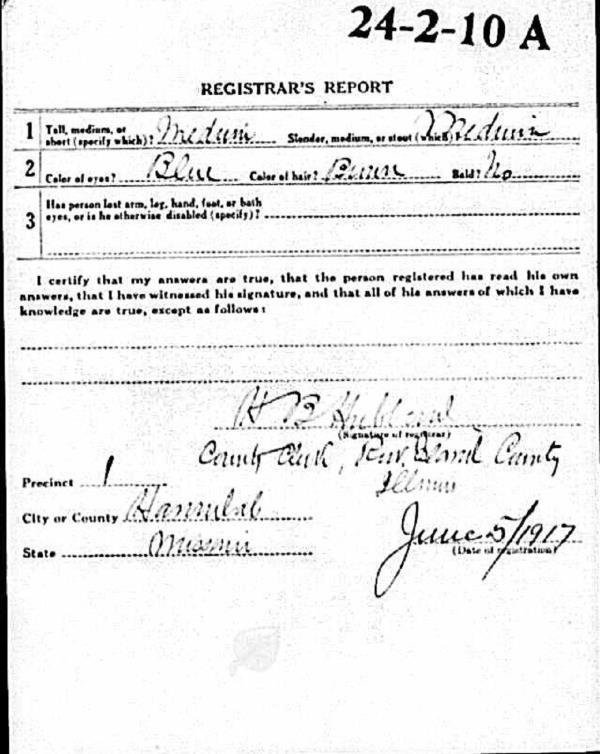 24-2-10 A
REGISTRAR'S REPORT
1 Tall, medium, or short (specify which)? Medium Slender, medium, or stout (which)? Medium
2 Color of eyes? Blue Color of hair? Brown Bald? No
3 Has person lost arm, leg, hand, foot, or both
eyes, or is he otherwise disabled (specify)?
I certify that my answers are true, that the person registered has read his own
answers, that I have witnessed his signature, and that all of his answers of which I have
knowledge are true, except as follows:
H B Hubbard
(Signature of registrar)
County Clerk, County
Illinois
Precinct 1
City or County Hannibal
State Missouri
June 5/1917
(Date of registration)